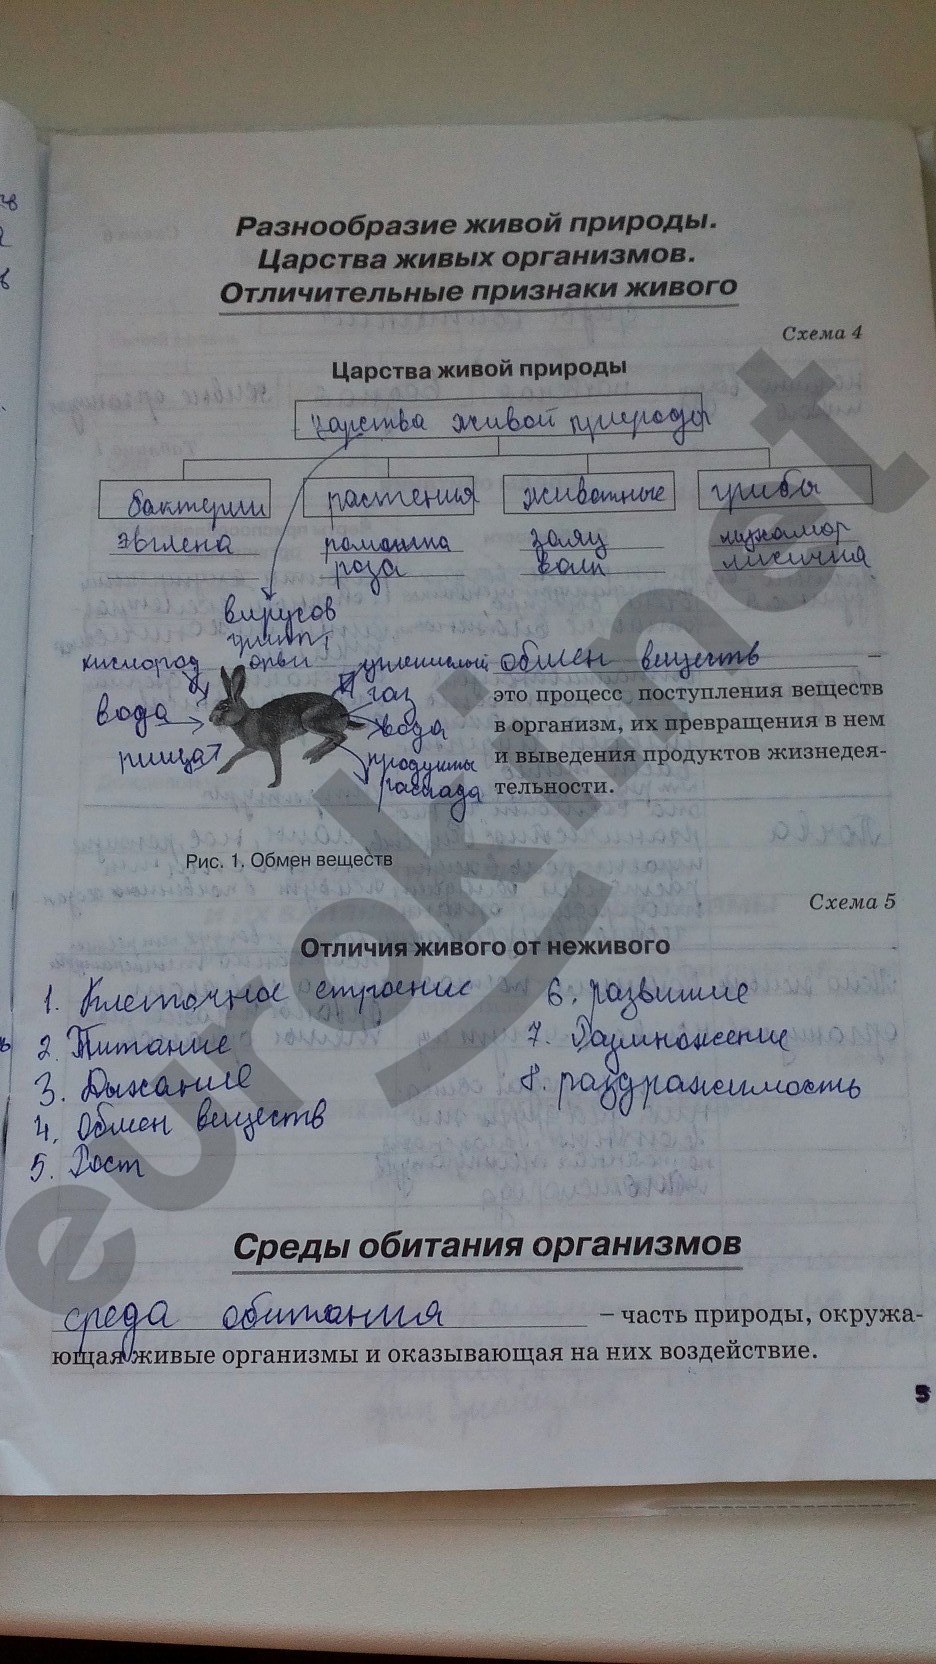 Разнообразие живой природы.
Царства живых организмов.
Отличительные признаки живого
Схема 4
Царства живой природы
царства живой природы
бактерии растения животные грибы
эвглена ромашка заяц мухомор
роза волк лисичка
вирусов
грипп
кислород орви углекислый обмен веществ –
газ это процесс поступления веществ
вода вода в организм, их превращения в нем
пища продукты и выведения продуктов жизнедея-
распада тельности.
Рис. 1. Обмен веществ
Схема 5
Отличия живого от неживого
1. Клеточное строение 6. развитие
2. Питание 7. Размножение
3. Дыхание 8. раздражимость
4. Обмен веществ
5. Рост
Среды обитания организмов
среда обитания – часть природы, окружа-
ющая живые организмы и оказывающая на них воздействие.
5
eurokinet